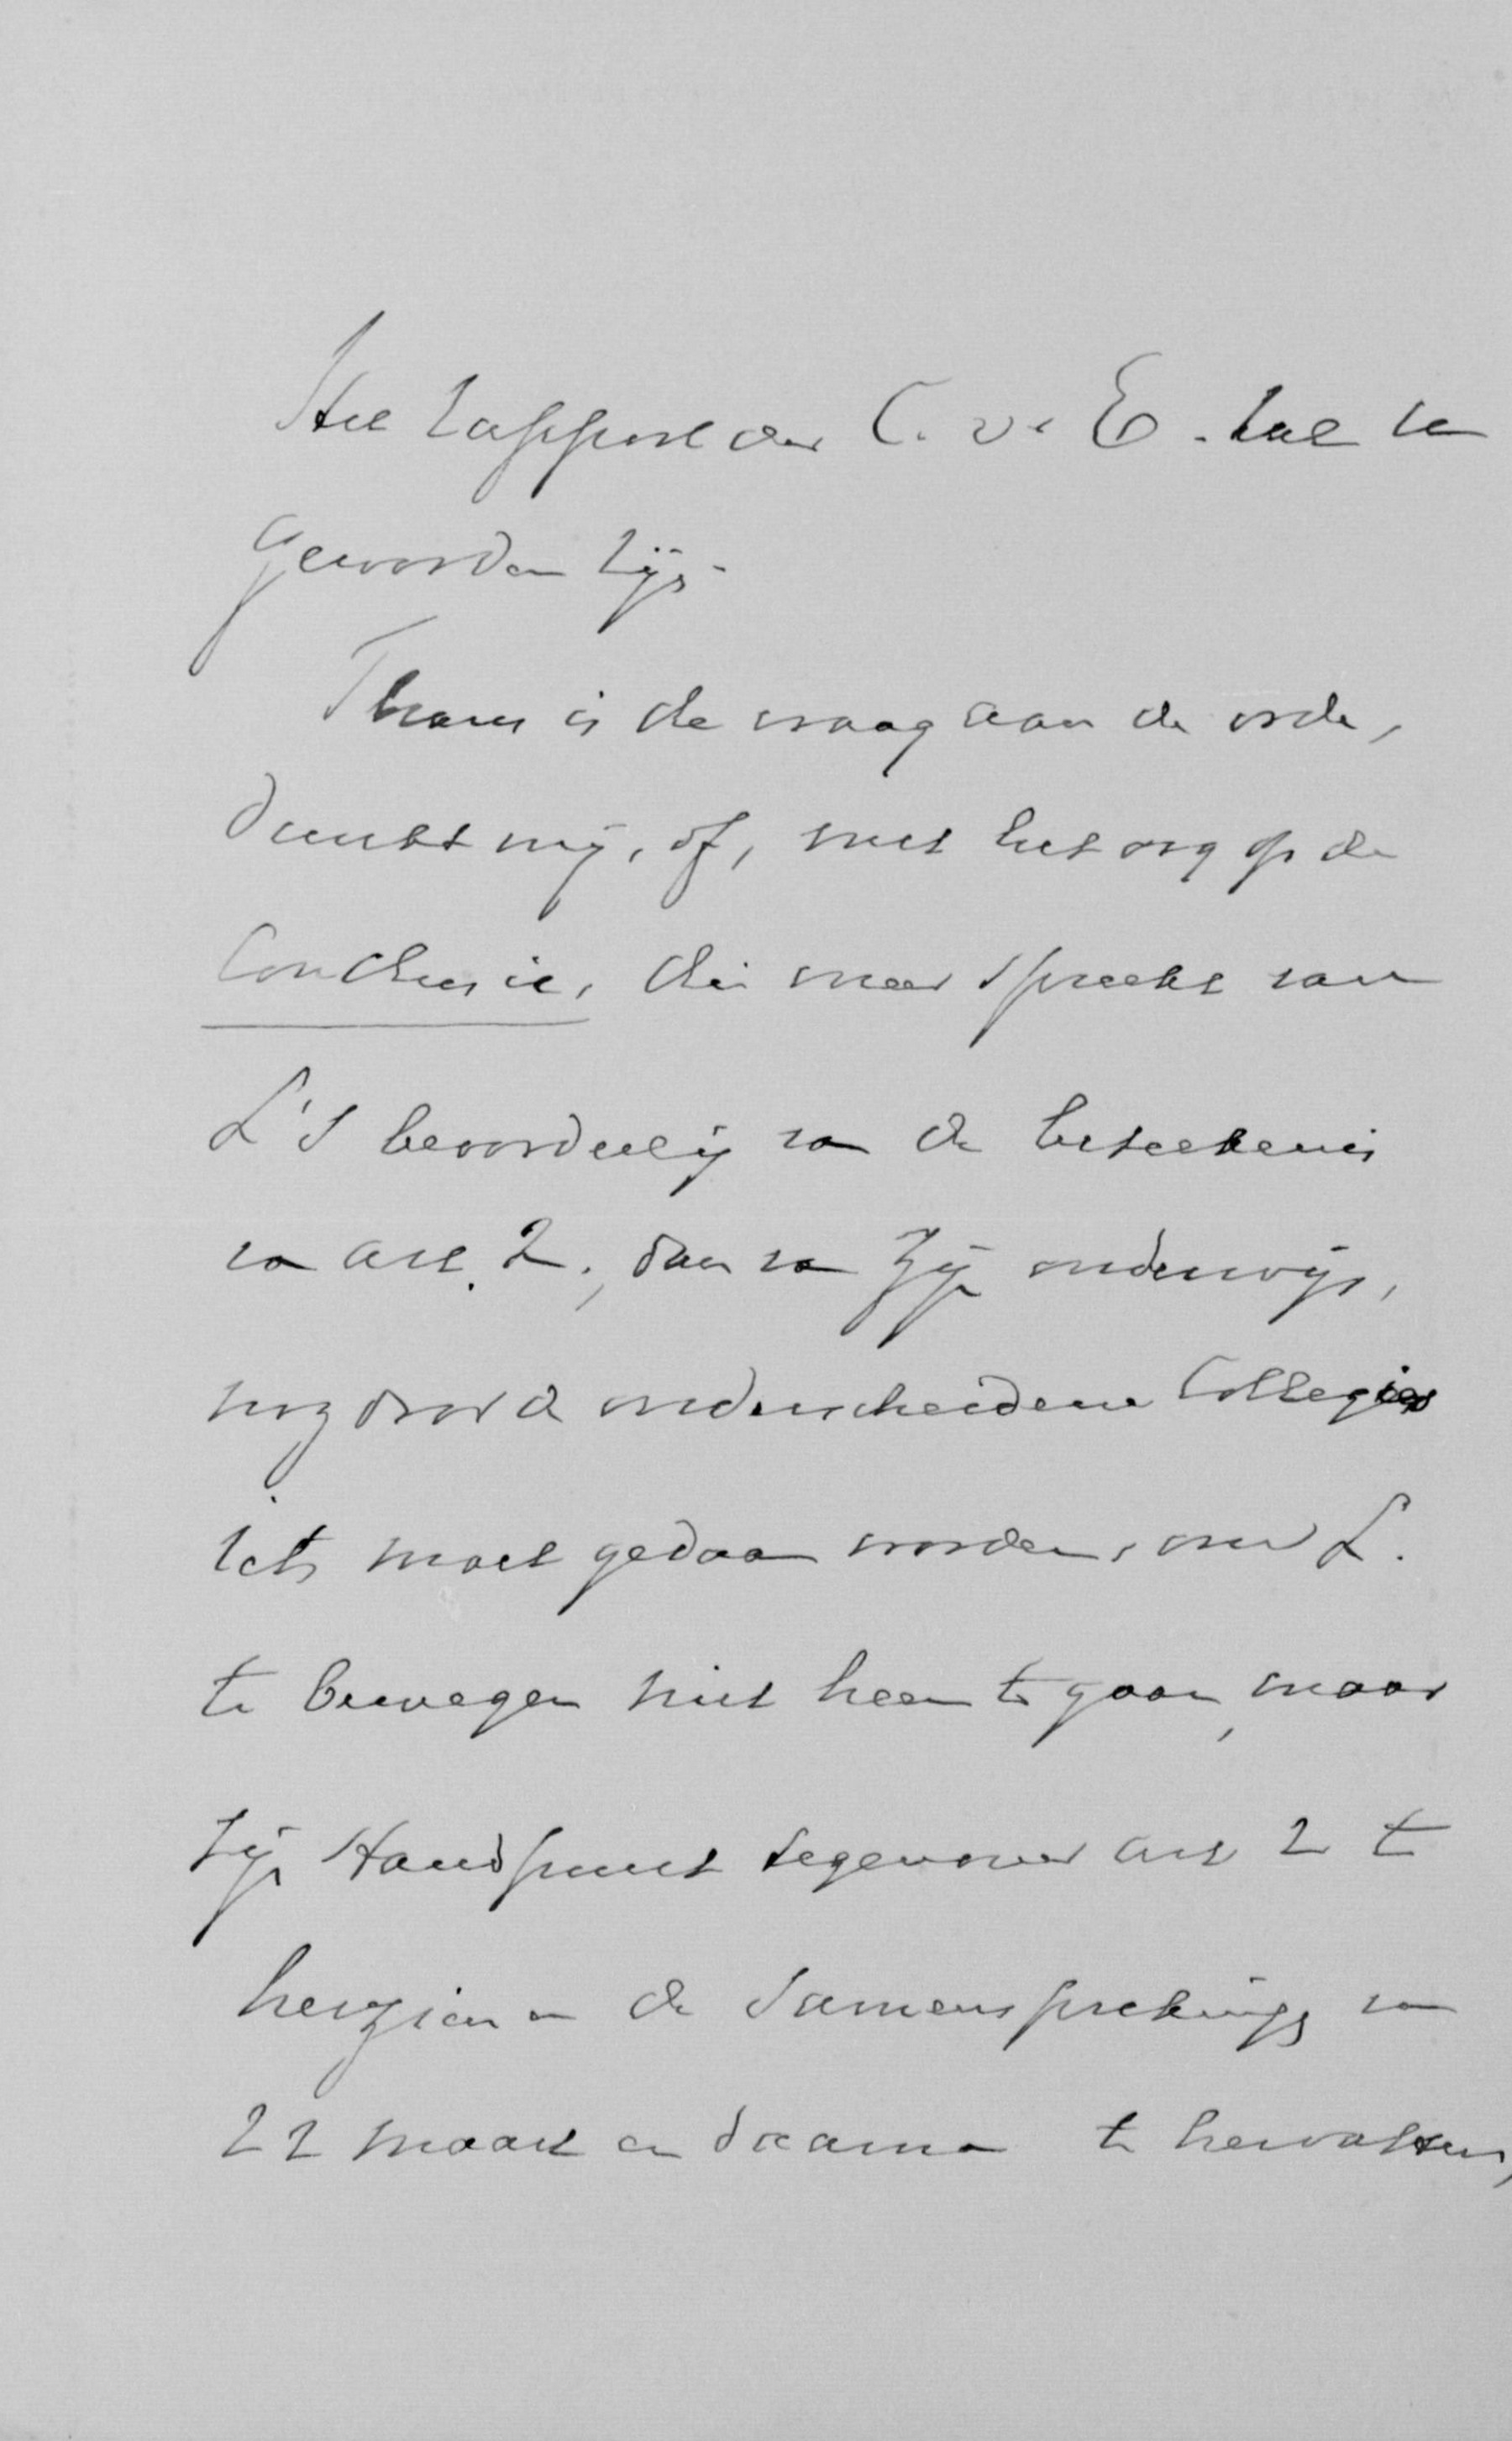 Het rapport der C. v. E. zal U
geworden zijn.
Thans is de vraag aan de orde,
dunkt mij, of, met het oog op de
Conclusie, die meer spreekt van
L's beoordeeling van de beteekenis
van art. 2, dan van zijn onderwijs,
nog door de onderscheidene Collegies
iets moet gedaan worden, om L.
te bewegen niet heen te gaan, maar
zijn standpunt tegenover art 2 te
herzien en de samensprekings van
22 maart en daarna te hervatten,